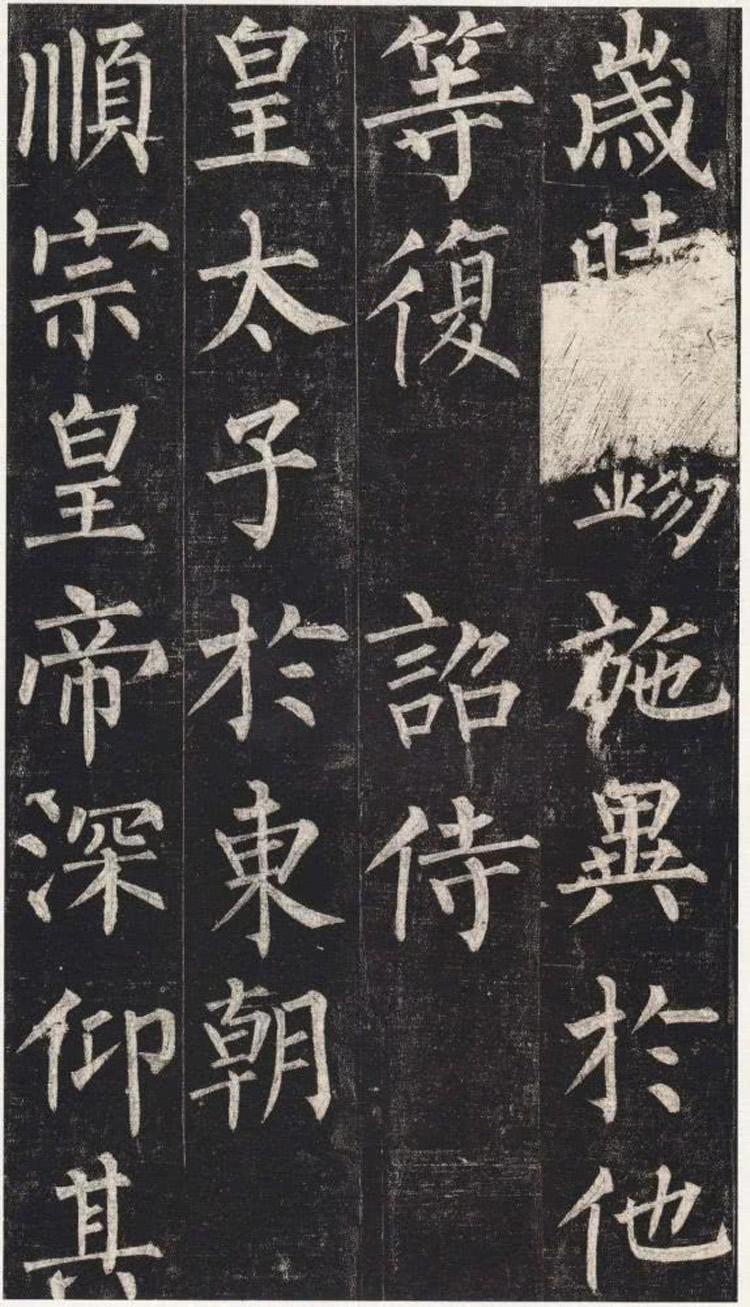 歲時錫施異於他
等復　詔侍
皇太子於東朝
順宗皇帝深仰其